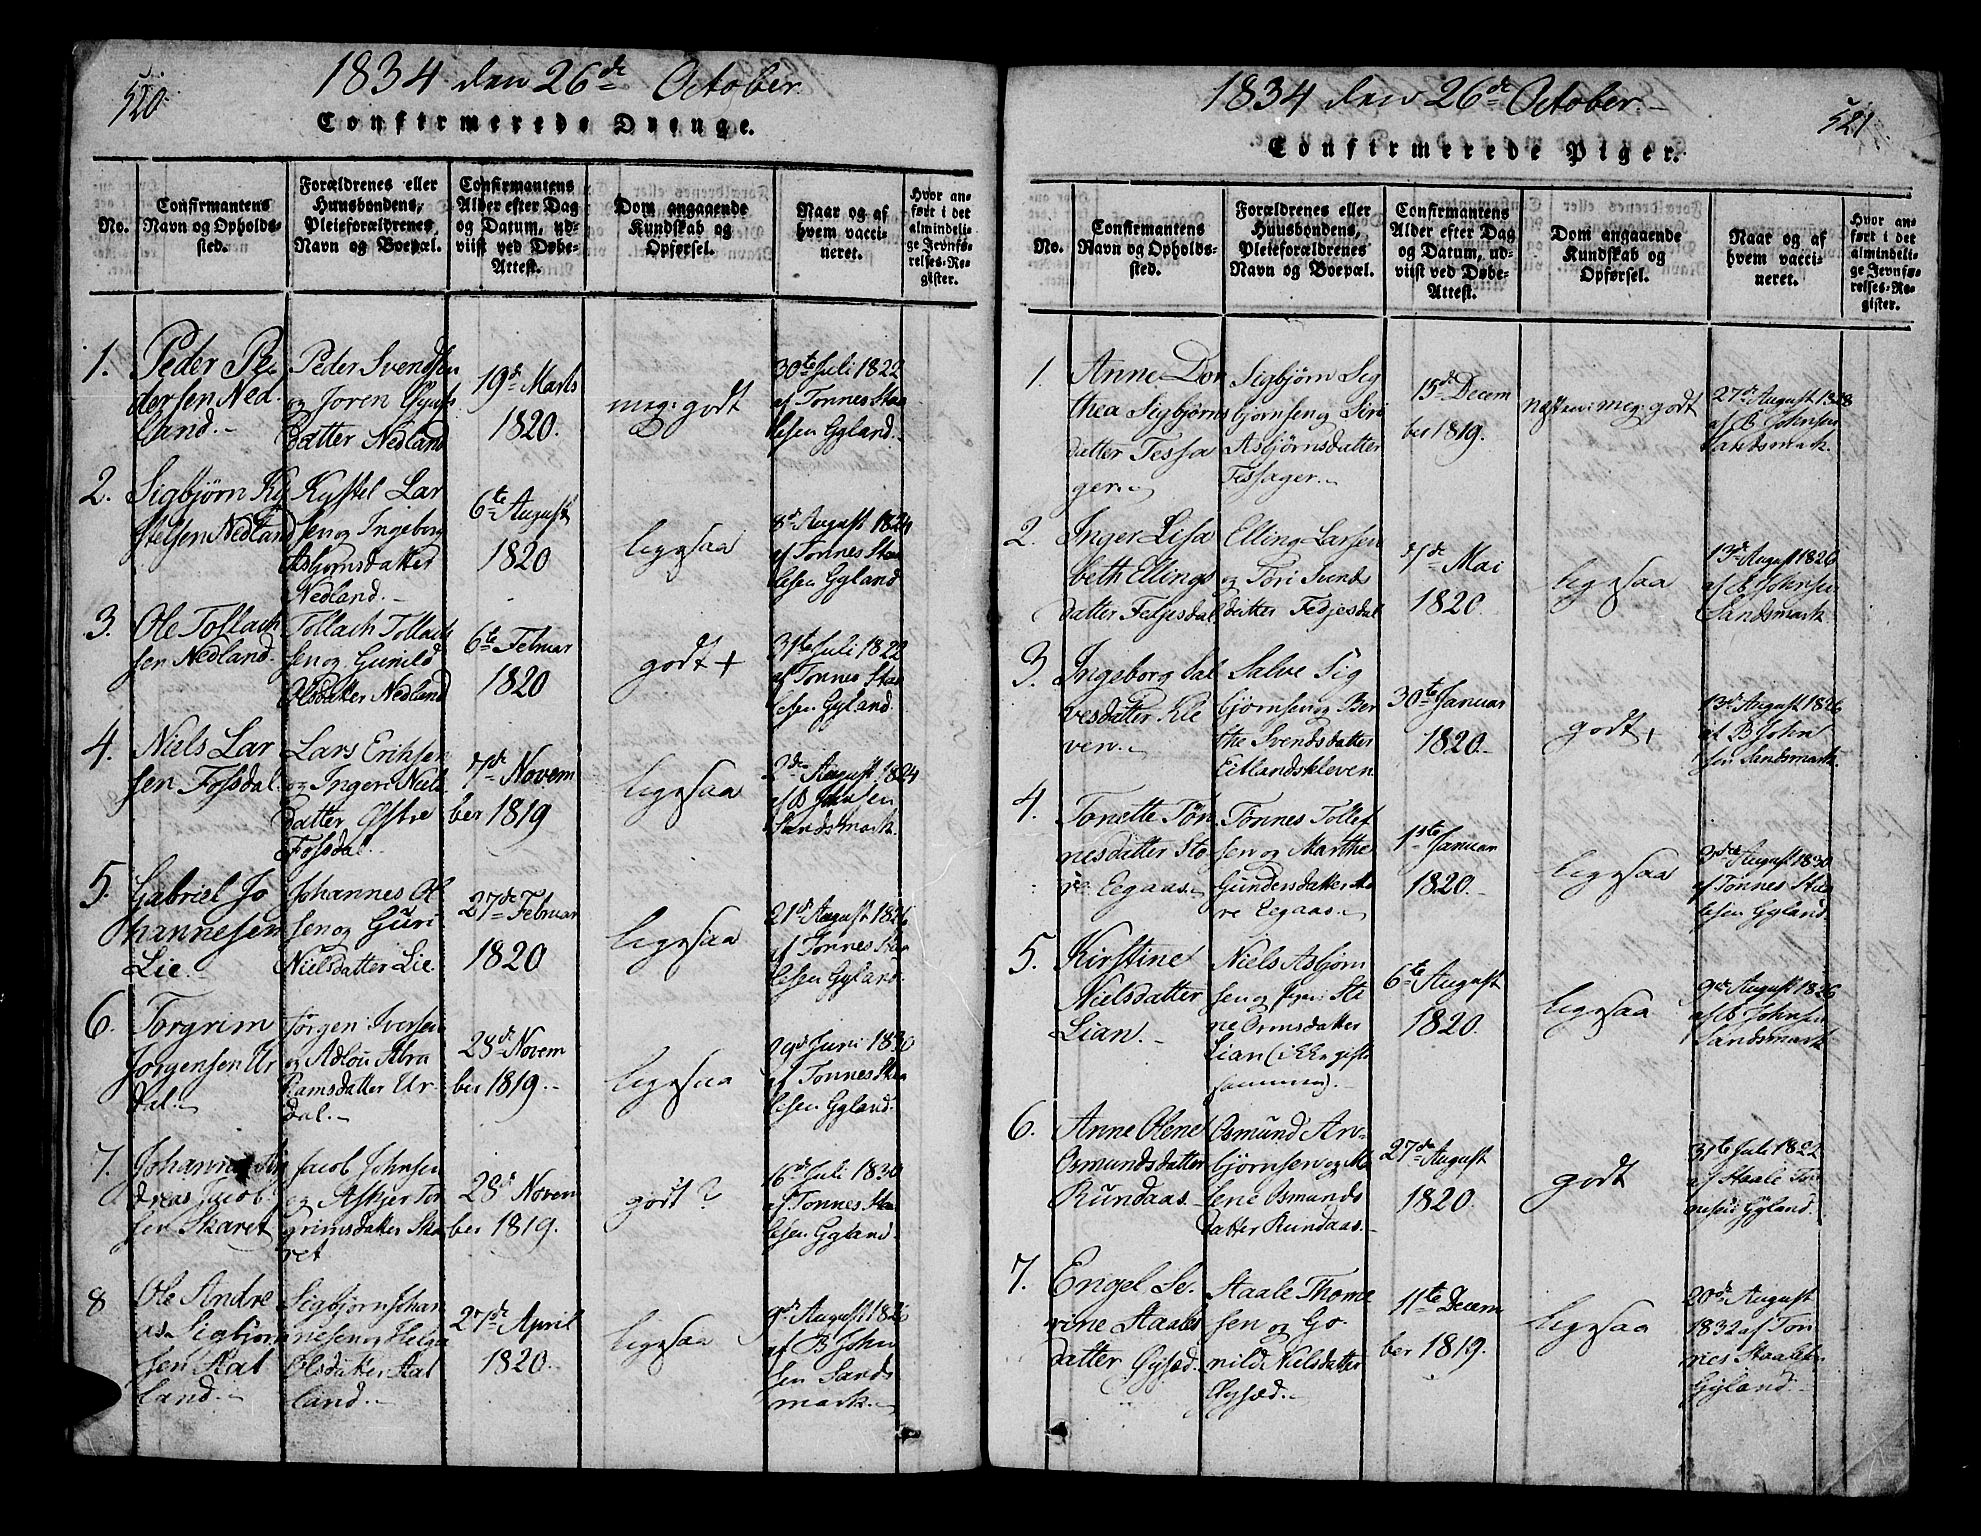 520.
1834 den 26de October
Confirmerede Drenge.
No.
Confirmantens
Navn og Opholds-
sted.
Forældrenes eller
Huusbondens,
Pleieforældrenes,
Navn og Boepæl.
Confirmantens
Alder efter Dag
og Datum, ud-
viist ved Døbe-
Attest.
Dom angaaende
Kundskab og
Opførsel.
Naar og af
hvem vacci-
neret.
Hvor an-
ført i det
almindeli-
ge Jevnfø-
relses-Re-
gister.
1.
Peder Pe
dersen Ned
land.
Peder Svendsen
og Joren
datter Nedland
19de Marts
1820.
meg: godt
30te Juli 1822
af Tønnes Staa
lesen Gyland.
2.
Sigbjørn Ky
stelsen Nedland
Kystel Lar
sen og Ingeborg
Asbjørnsdatter
Nedland.
6te August
1820
ligesaa
8de August 1824
af Tonnes Staa
lesen Gyland
3.
Ole Tollach
sen Nedland.
Tollach Tollach
sen og Gunild
Olsdatter Nedland
6te Februar
1820
godt +
31te Juli 1822
af Tonnes Staa
lesen Gyland.
4.
Niels Lar
sen Fossdal.
Lars Eriksen
og Ingeri Niels
datter Østre
Fossdal.
7de Novem
ber 1819
ligesaa
2de August 1824
af B Johnsen
Sandsmark.
5.
Gabriel Jo
hannesen
Lie.
Johannes Ol
sen og Guri
Nielsdatter Lie.
27de Februar
1820
ligesaa
21de August 1826
af Tonnes Staa
lesen Gyland.
6.
Torgrim
Jørgensen Ur
dal.
Jørgen Iversen
og Adlou Abra
hamsdatter Ur-
dal.
28de Novem
ber 1819.
ligesaa
19de Juni 1830
af Tonnes Staa
lesen Gyland.
7.
Johannes An
dreas Jacob
sen Skaret
Jacob Johnsen
og Askjer Tor
grimsdatter Ska
ret
28de Novem
ber 1819.
godt?
16de Juli 1830
af Tonnes Staa
lesen Gyland
8
Ole Andre
as Sigbjørn
sen Aal
land.
Sigbjørn Johan
nesen og Helga
Olsdatter Aal
land.
27de April
1820.
ligesaa
9de August 1826
af B John
sen Sands
mark.
1834 den 26de October.
521
Confirmerede Piger.
No.
Confirmantens
Navn og Opholds-
sted.
Forældrenes eller
Huusbondens,
Pleieforældrenes
Navn og Boepæl.
Confirmantens
Alder efter Dag
og Datum, ud-
viist ved Døbe-
Attest.
Dom angaaende
Kundskab og
Opførsel.
Naar og af
hvem vacci-
neret.
Hvor an-
ført i det
almindeli-
ge Jevnfø-
relses-Re-
gister.
1.
Anne Dor
thea Sigbjørns
datter Tessa
ger.
Sigbjørn Sig
bjørnsen og Siri
Asbjørnsdatter
Tessager.
15de Decem
ber 1819.
næsten meg: godt
27de August 1828
af B Johnsen
Sandsmark.
2.
Inger Lisa
beth Ellings
datter Fedjesdal
Elling Larsen
og Tori Svends
datter Fedjesdal
7de Mai
1820.
ligesaa
13de August 1826
af B Johnsen
Sandsmark.
3.
Ingeborg Sal
vesdatter Kle
ven.
Salve Sig
bjørnsen og Ber
the Svendsdatter
Eitlandskleven
30te Januar
1820.
godt +
13de August 1826
af B John
sen Sandsmark.
4.
Tonette Tøn
nesdatter Sto
re Eegaas.
Tønnes Tollef
sen og Marthe
Gundersdatter Sto
re Eegaas.
1ste Januar
1820.
ligesaa
3de August 1830
af Tonnes Staa
lesen Gyland.
5.
Kirstine
Nielsdatter
Lian.
Niels Asbjørn
sen og Sta
ne Ormsdatter
Lian (ikke gifte
sammen).
6te August
1820.
ligesaa
9de August 1826
af B Johnsen
Sandsmark
6.
Anne Olene
Osmundsdatter
Rundaas.
Osmund Arn-
bjørnsen og Ma
lene Osmunds
datter Rundaas.
27de August
1820.
godt
31te Juli 1822
af Staale Ton
nesen Gyland.
7.
Engel Se-
rine Staales
datter Øysæd.
Staale Thome
sen og Go
nild Nielsdatter
Øysæd.
11te Decem
ber 1819.
ligesaa
20de August
1832 af Ton
nes Staalesen
Gyland.